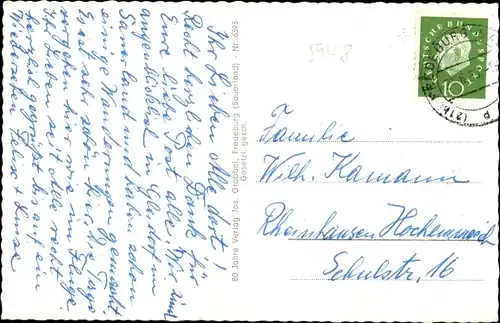 Ihr Lieben Alle dort!
Recht herzlichen Dank für
Eure liebe Post alle! Wir sind
augenblicklich in Gleidorf im
Sauerland und haben schon
einige Wanderungen gemacht
Es ist sehr schön hier. Die Tage
vergehen hier wie im Fluge
Ihr Lieben seit Alle recht
herzlich gegrüßt bis auf ein
Wiedersehn
80 Jahre Verlag Jos. Grobbel, Fredeburg (Sauerland) Nr. 6395
Gesetzl. gesch.
5948
DEUTSCHE BUNDESPOST
10
FREDEBURG
(21b)
Familie
Wilh. Kamann
Rheinhausen Hochemmerich
Schulstr. 16